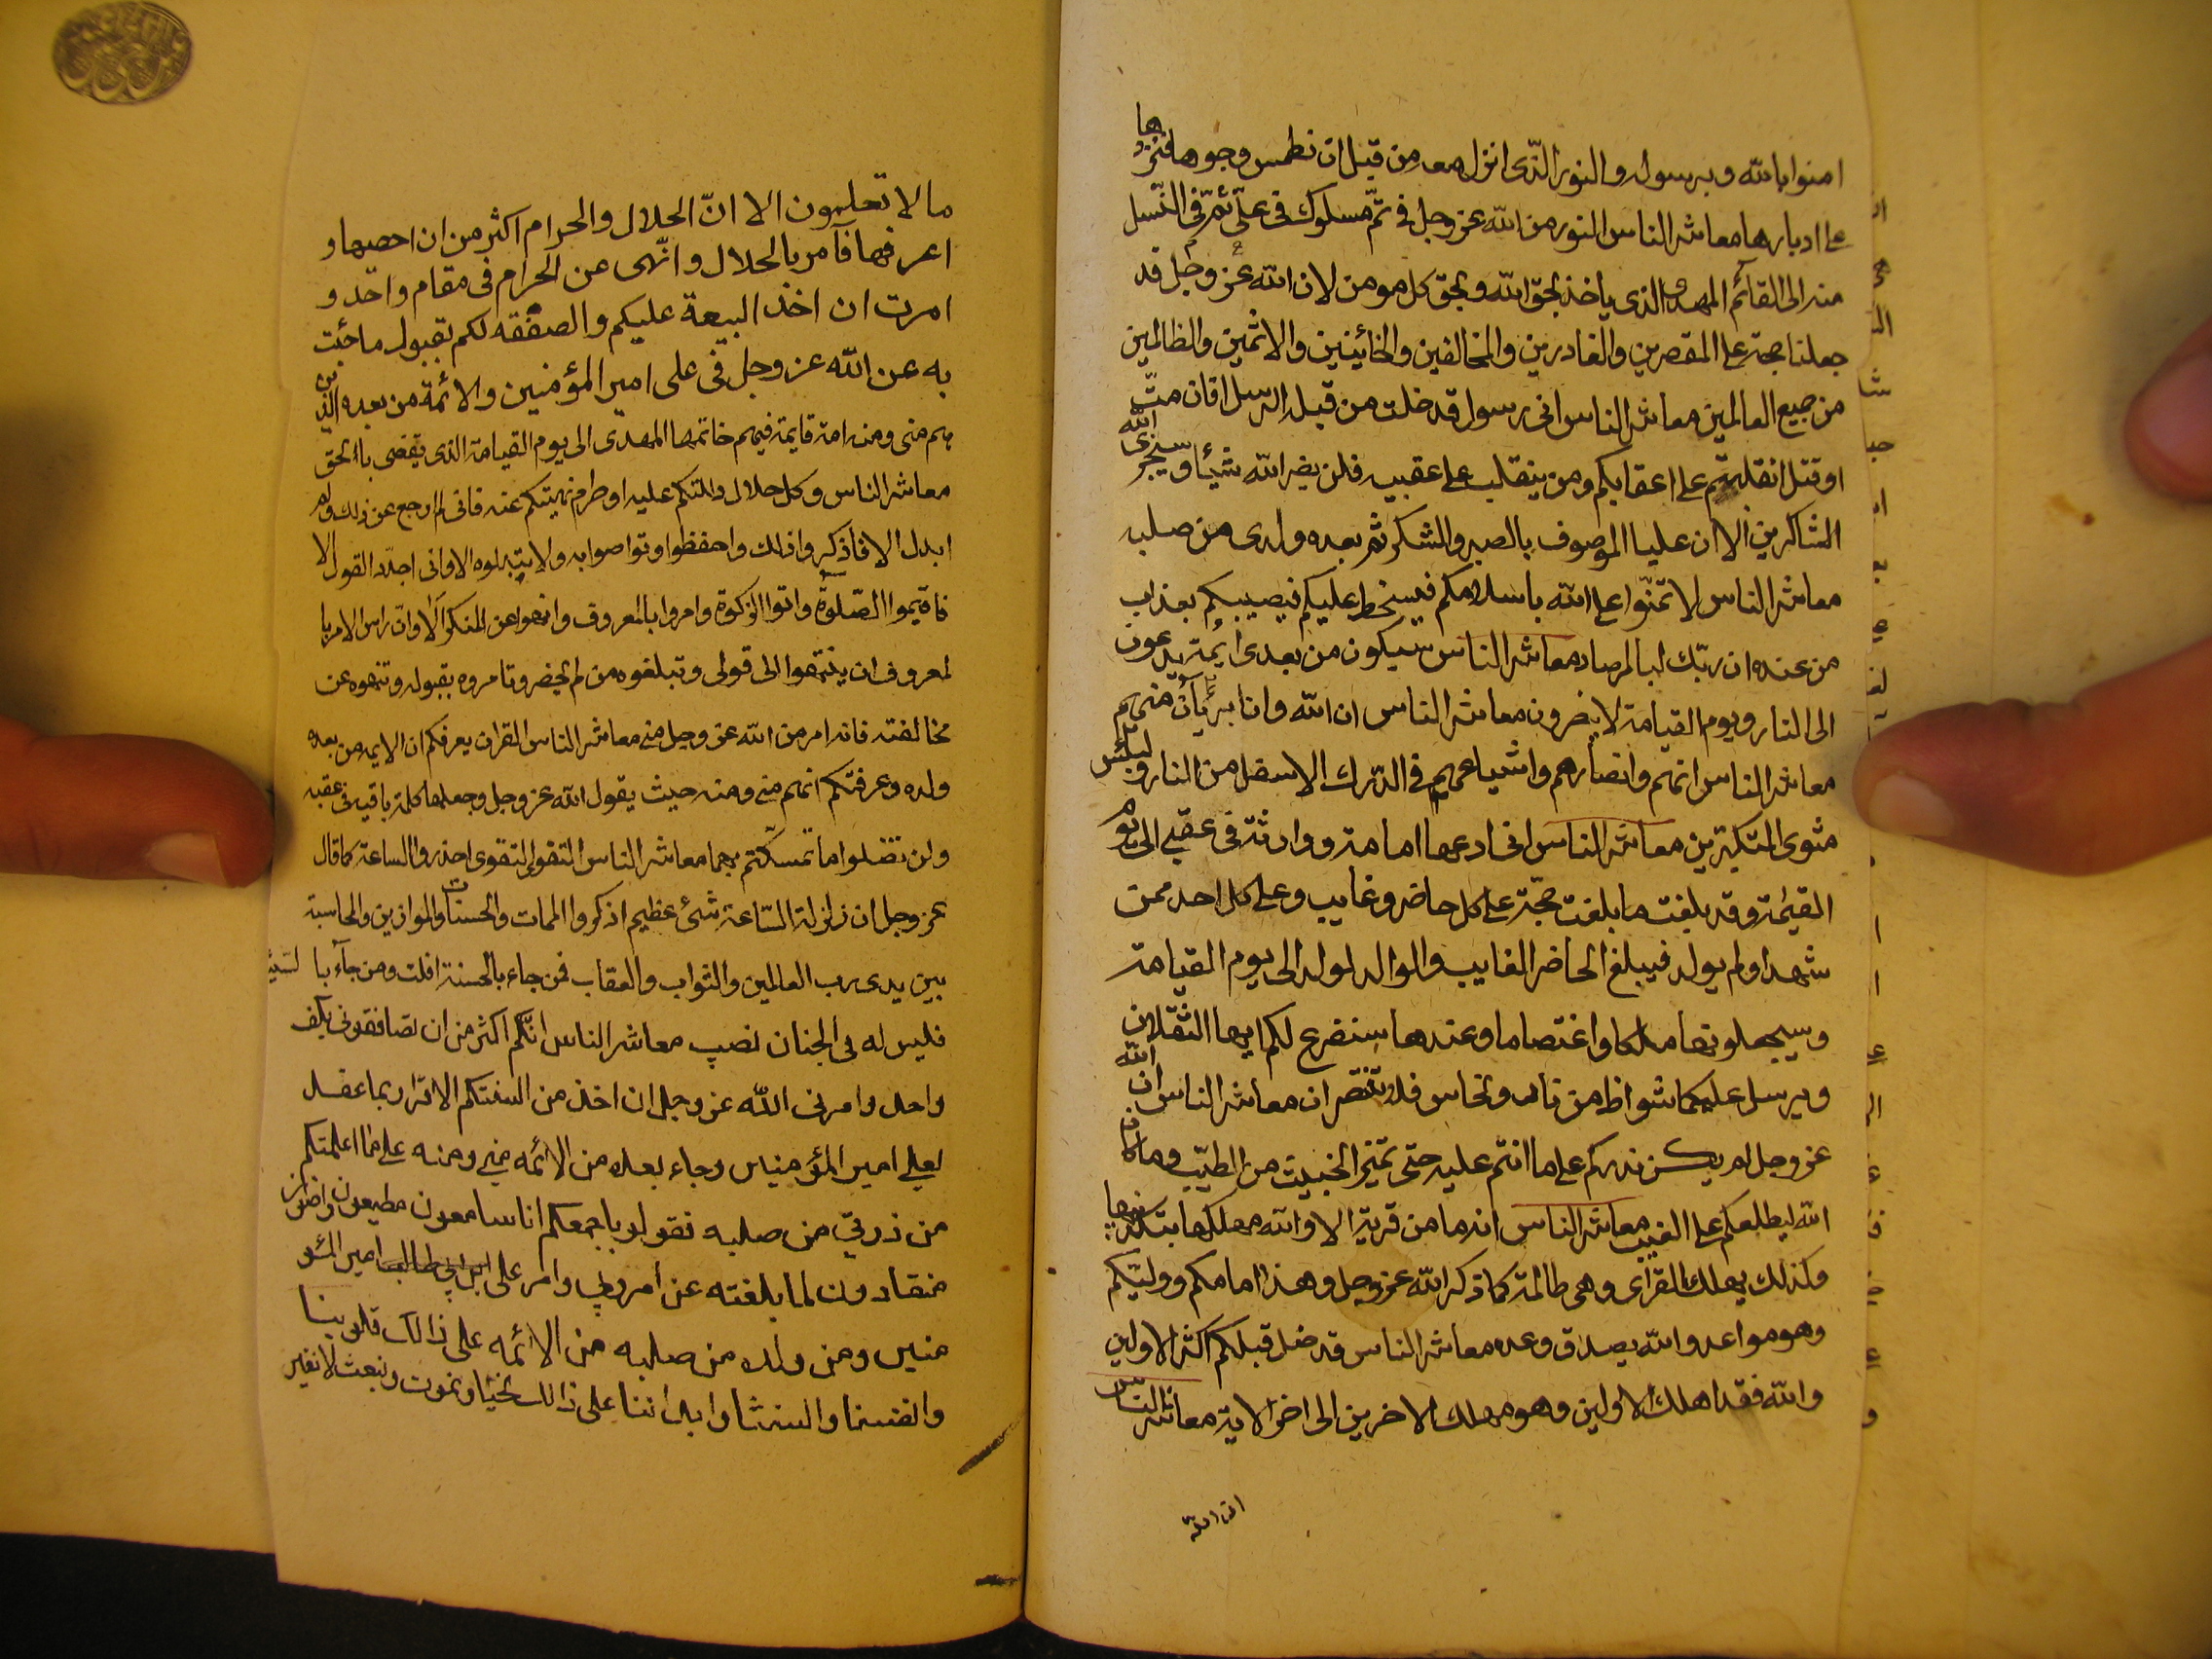 امنوا بالله وبرسوله والنور الذى انزل معه من قبل ان نطمس وجوها فنردها
على ادبارها معاشر الناس النور من الله عز وجل فى ثم مسلوك فى على ثم فى النسل
منه الى القائم المهدى الذى ياخذ بحق الله وبحق كل مومن لان الله عز وجل قد
جعلنا حجة على المقصرين والغادرين والمخالفين والخائنين والاثمين والظالمين
من جميع العالمين معاشر الناس انى رسول قد خلت من قبله الرسل افان مت
او قتل انقلبتم على اعقابكم ومن ينقلب على عقبيه فلن يضر الله شيئا وسيجزى الله
الشاكرين الا ان عليا الموصوف بالصبر والشكر ثم بعده ولدى من صلبه
معاشر الناس لا تمنوا على الله باسلامكم فيسخط عليكم فيصيبكم بعذاب
من عنده ان ربك لبالمرصاد معاشر الناس سيكون من بعدى ائمة يدعون
الى النار ويوم القيامة لا ينصرون معاشر الناس ان الله وانا بريئان منهم
معاشر الناس انهم وانصارهم واشياعهم فى الدرك الاسفل من النار ولبئس
مثوى المتكبرين معاشر الناس انى ادعها امامة ووراثة فى عقبى الى يوم
القيمة وقد بلغت ما بلغت حجة على كل حاضر وغايب وعلى كل احد ممن
شهد او لم يولد فيبلغ الحاضر الغايب والوالد لولد الى يوم القيامة
وسيجعلونها ملكا واغتصاما وعندها سنفرع لكم ايها الثقلان
ويرسل عليكما شواظ من نار ونحاس فلا تنتصران معاشر الناس ان الله
عز وجل لم يكن نذركم على ما انتم عليه حتى تميز الخبيث من الطيب وما كان
الله ليطلعكم على الغيب معاشر الناس انه ما من قرية الا والله مهلكها بتكذيبها
وكذلك يهلك القرى وهى ظالمة كما ذكر الله عز وجل وهذا امامكم ووليكم
وهو مواعد والله يصدق وعده معاشر الناس قد ضل قبلكم اكثر الاولين
والله فقد اهلك الاولين وهو مهلك الاخرين الى اخر الاية معاشر الناس
ان الله
ما لا تعلمون الا ان الحلال والحرام اكثر من ان احصها و
اعرفها فآمر بالحلال وانهى عن الحرام فى مقام واحد و
امرت ان اخذ البيعة عليكم والصفقه لكم بقبول ما جئت
به عن الله عز وجل فى على امير المؤمنين والائمة من بعده الذين
هم منى ومنه امة قايمة فيهم خاتمها المهدى الى يوم القيامة الذى يقضى باالحق
معاشر الناس وكل حلال دللتكم عليه او حرام نهيتكم عنه فانى لم ارجع عن ذلك ولم
ابدل الا فاذكروا ذلك واحفظوا وتواصوا به ولا تبدلوه الا وانى اجدد القول الا
فاقيموا الصلوة واتوا الزكوة وامروا بالمعروف وانهوا عن المنكر الا وان راس الامر با
لمعروف ان ينتهوا الى قولى وتبلغوه من لم يحضر وتامروه بقبوله وتنهوه عن
مخالفته فانه امر من الله عز وجل منى معاشر الناس القران يعرفكم ان الايمه من بعده
ولده وعرفتكم انهم منى ومنه حيث يقول الله عز وجل وجعلها كلمة باقية فى عقبه
ولن تضلوا ما تمسكتم بهما معاشر الناس التقوى التقوى احذروا الساعة كما قال
عز وجل ان زلزلة الساعة شئ عظيم اذكروا الممات والحسنات والموازين والمحاسبة
بين يدى رب العالمين والثواب والعقاب فمن جاء بالحسنة افلت ومن جاء با لسيئة
فليس له فى الجنان نصيب معاشر الناس انكم اكثر من ان تصافقونى بكف
واحد وامرنى الله عز وجل ان اخذ من السنتكم الاقرار بما عقد
لعلى امير المؤمنين وجاء بعده من الائمه منى ومنه على ما اعلمتكم
من ذرتي من صلبه فقولو باجمعكم انا سامعون مطيعون راضون
منقادون لما بلغته عن امر ربى وامر على ابن ابى طالب امير المؤ
منين ومن ولده من صلبه من الائمه على ذالك قلوبنا
وانفسنا والسنتنا وابداننا على ذالك نحيا ونموت ونبعث لا نغير